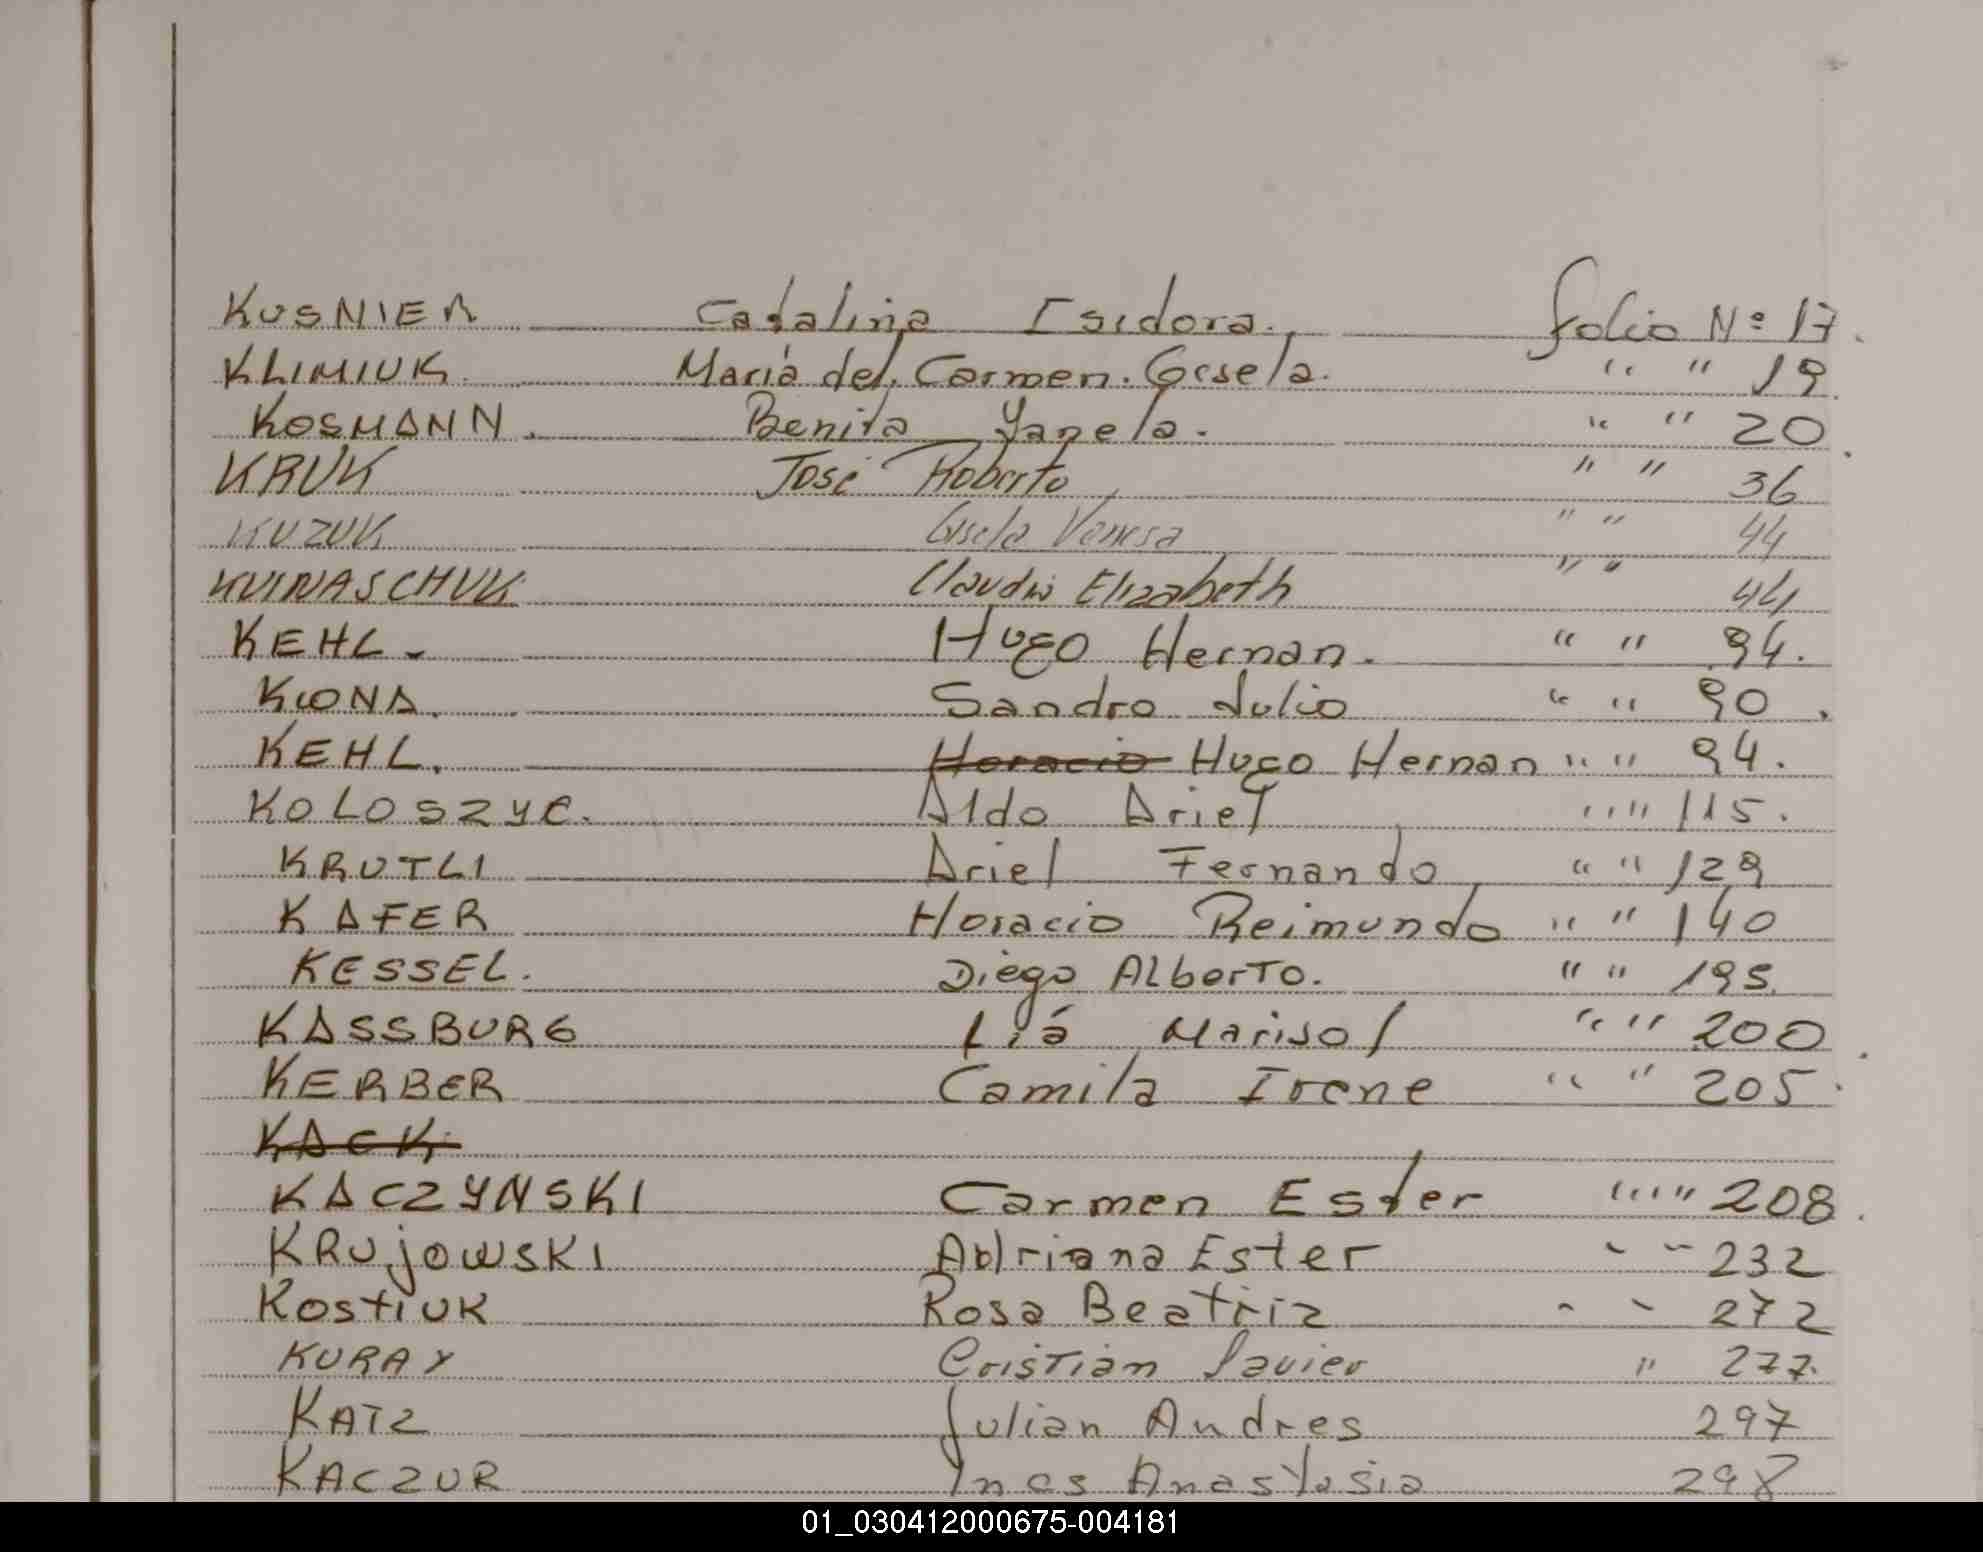 KUSNIER Catalina Isidora. folio Nº 17.
KLIMIUK. Maria del Carmen. Gisela. " " 19.
KOSMANN. Benita Yanela. " " 20.
KRUK José Roberto " " 36
KUZUK Gisela Vanesa " " 44
KUINASCHUK Claudia Elizabeth " " 44
KEHL. Hugo Hernan. " " 94.
KWONA. Sandro Julio " " 90.
KEHL. Horacio Hugo Hernan " " 94.
KOLOSZYC. Aldo Ariel " " 115.
KRUTLI Ariel Fernando " " 129
KAFER Horacio Reimundo " " 140
KESSEL. Diego ALberTo. " " 195.
KASSBURG Liá Marisol " " 200.
KERBER Camila Irene " " 205.
KACK
KACZYNSKI Carmen Ester " " 208.
KRUjOWSKI Adriana Ester " " 232
KostiUK Rosa Beatriz " " 272
KURAY CrisTian Javier " 277.
KATZ Julian Andres 297
KACZUR Ines Anastasia 298
01_030412000675-004181